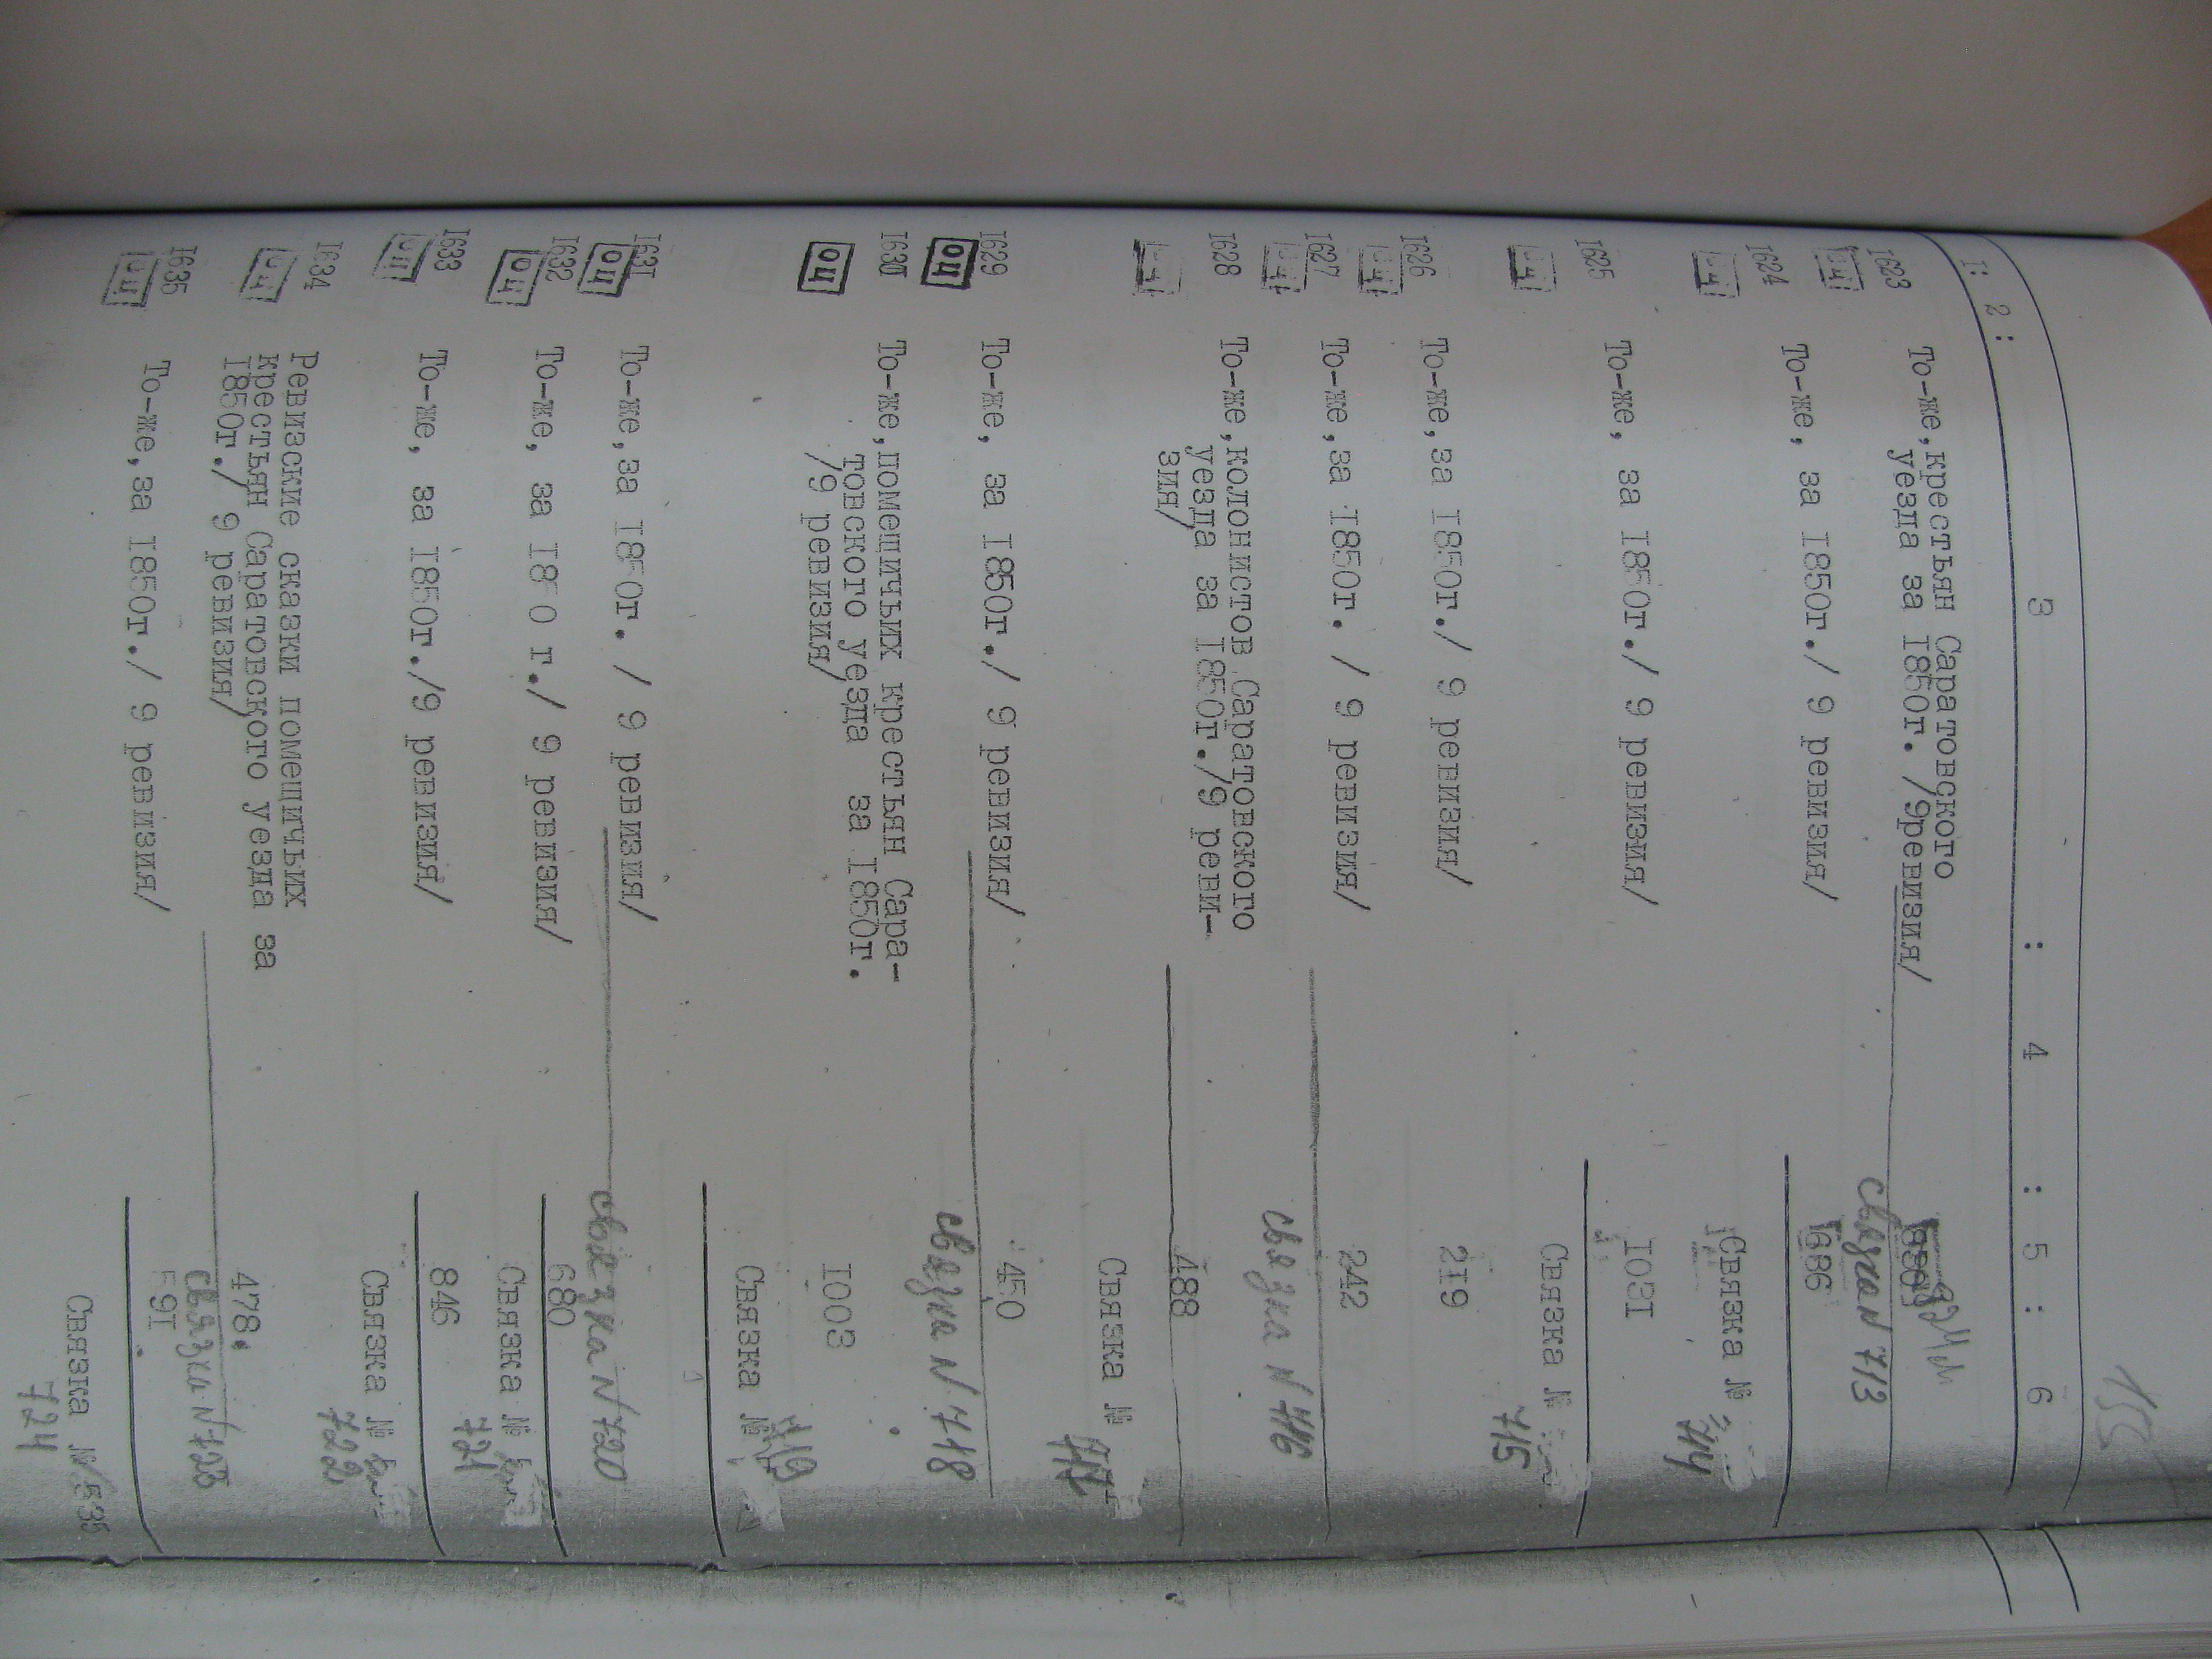 155
I: 2 : 3 : 4 : 5 : 6
I623 То-же,крестьян Саратовского
оц уезда за I850г. /9ревизия/
связка N 713
I624 То-же, за I850г./ 9 ревизия/ I686
оц
Связка №
714
I625 То-же, за I850г./ 9 ревизия/ I03I
оц
Связка №
715
I626 То-же,за I850г./ 9 ревизия/ 2I9
оц
I627 То-же,за I850г. / 9 ревизия/ 242
оц
связка N 716
I628 То-же,колонистов Саратовского
оц уезда за I850г./9 реви-
зия/ 488
Связка №
717
I629 То-же, за I850г./ 9 ревизия/ 450
оц
связка N 718
I630 То-же,помещичьих крестьян Сара-
товского уезда за I850г.
оц /9 ревизия/ I003
Связка №
719
I63I То-же,за I850г. / 9 ревизия/
оц
связка N 720
I632 То-же, за I850 г./ 9 ревизия/ 680
оц
Связка №
721
I633 То-же, за I850г./9 ревизия/ 846
оц
Связка №
722
I634 Ревизские сказки помещичьих
крестьян Саратовского уезда за
оц I850г./ 9 ревизия/ 478.
связка N 723
I635 То-же,за I850г./ 9 ревизия/ 59I
оц
Связка № 535
724